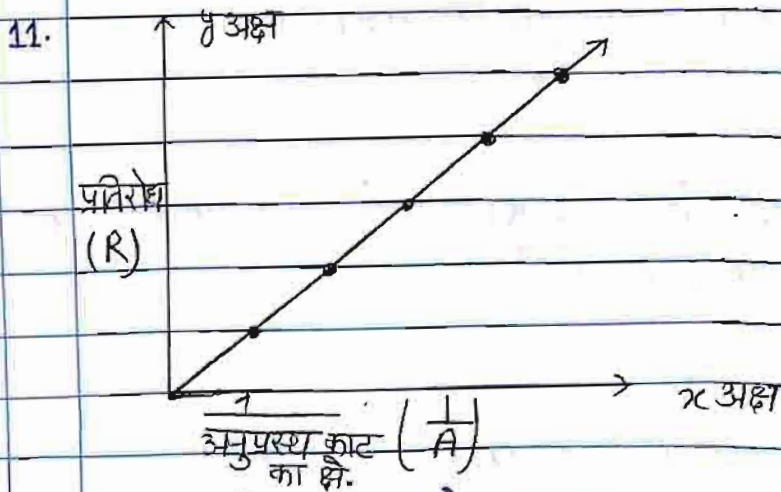 11.
y अक्ष
प्रतिरोध
(R)
x अक्ष
1
अनुप्रस्थ काट ( 1/A )
का क्षे.